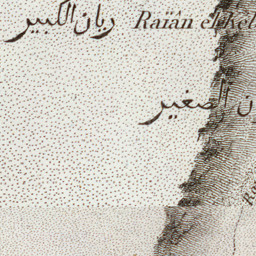 ريان الكبير Raïân el Keb
ن الصغير